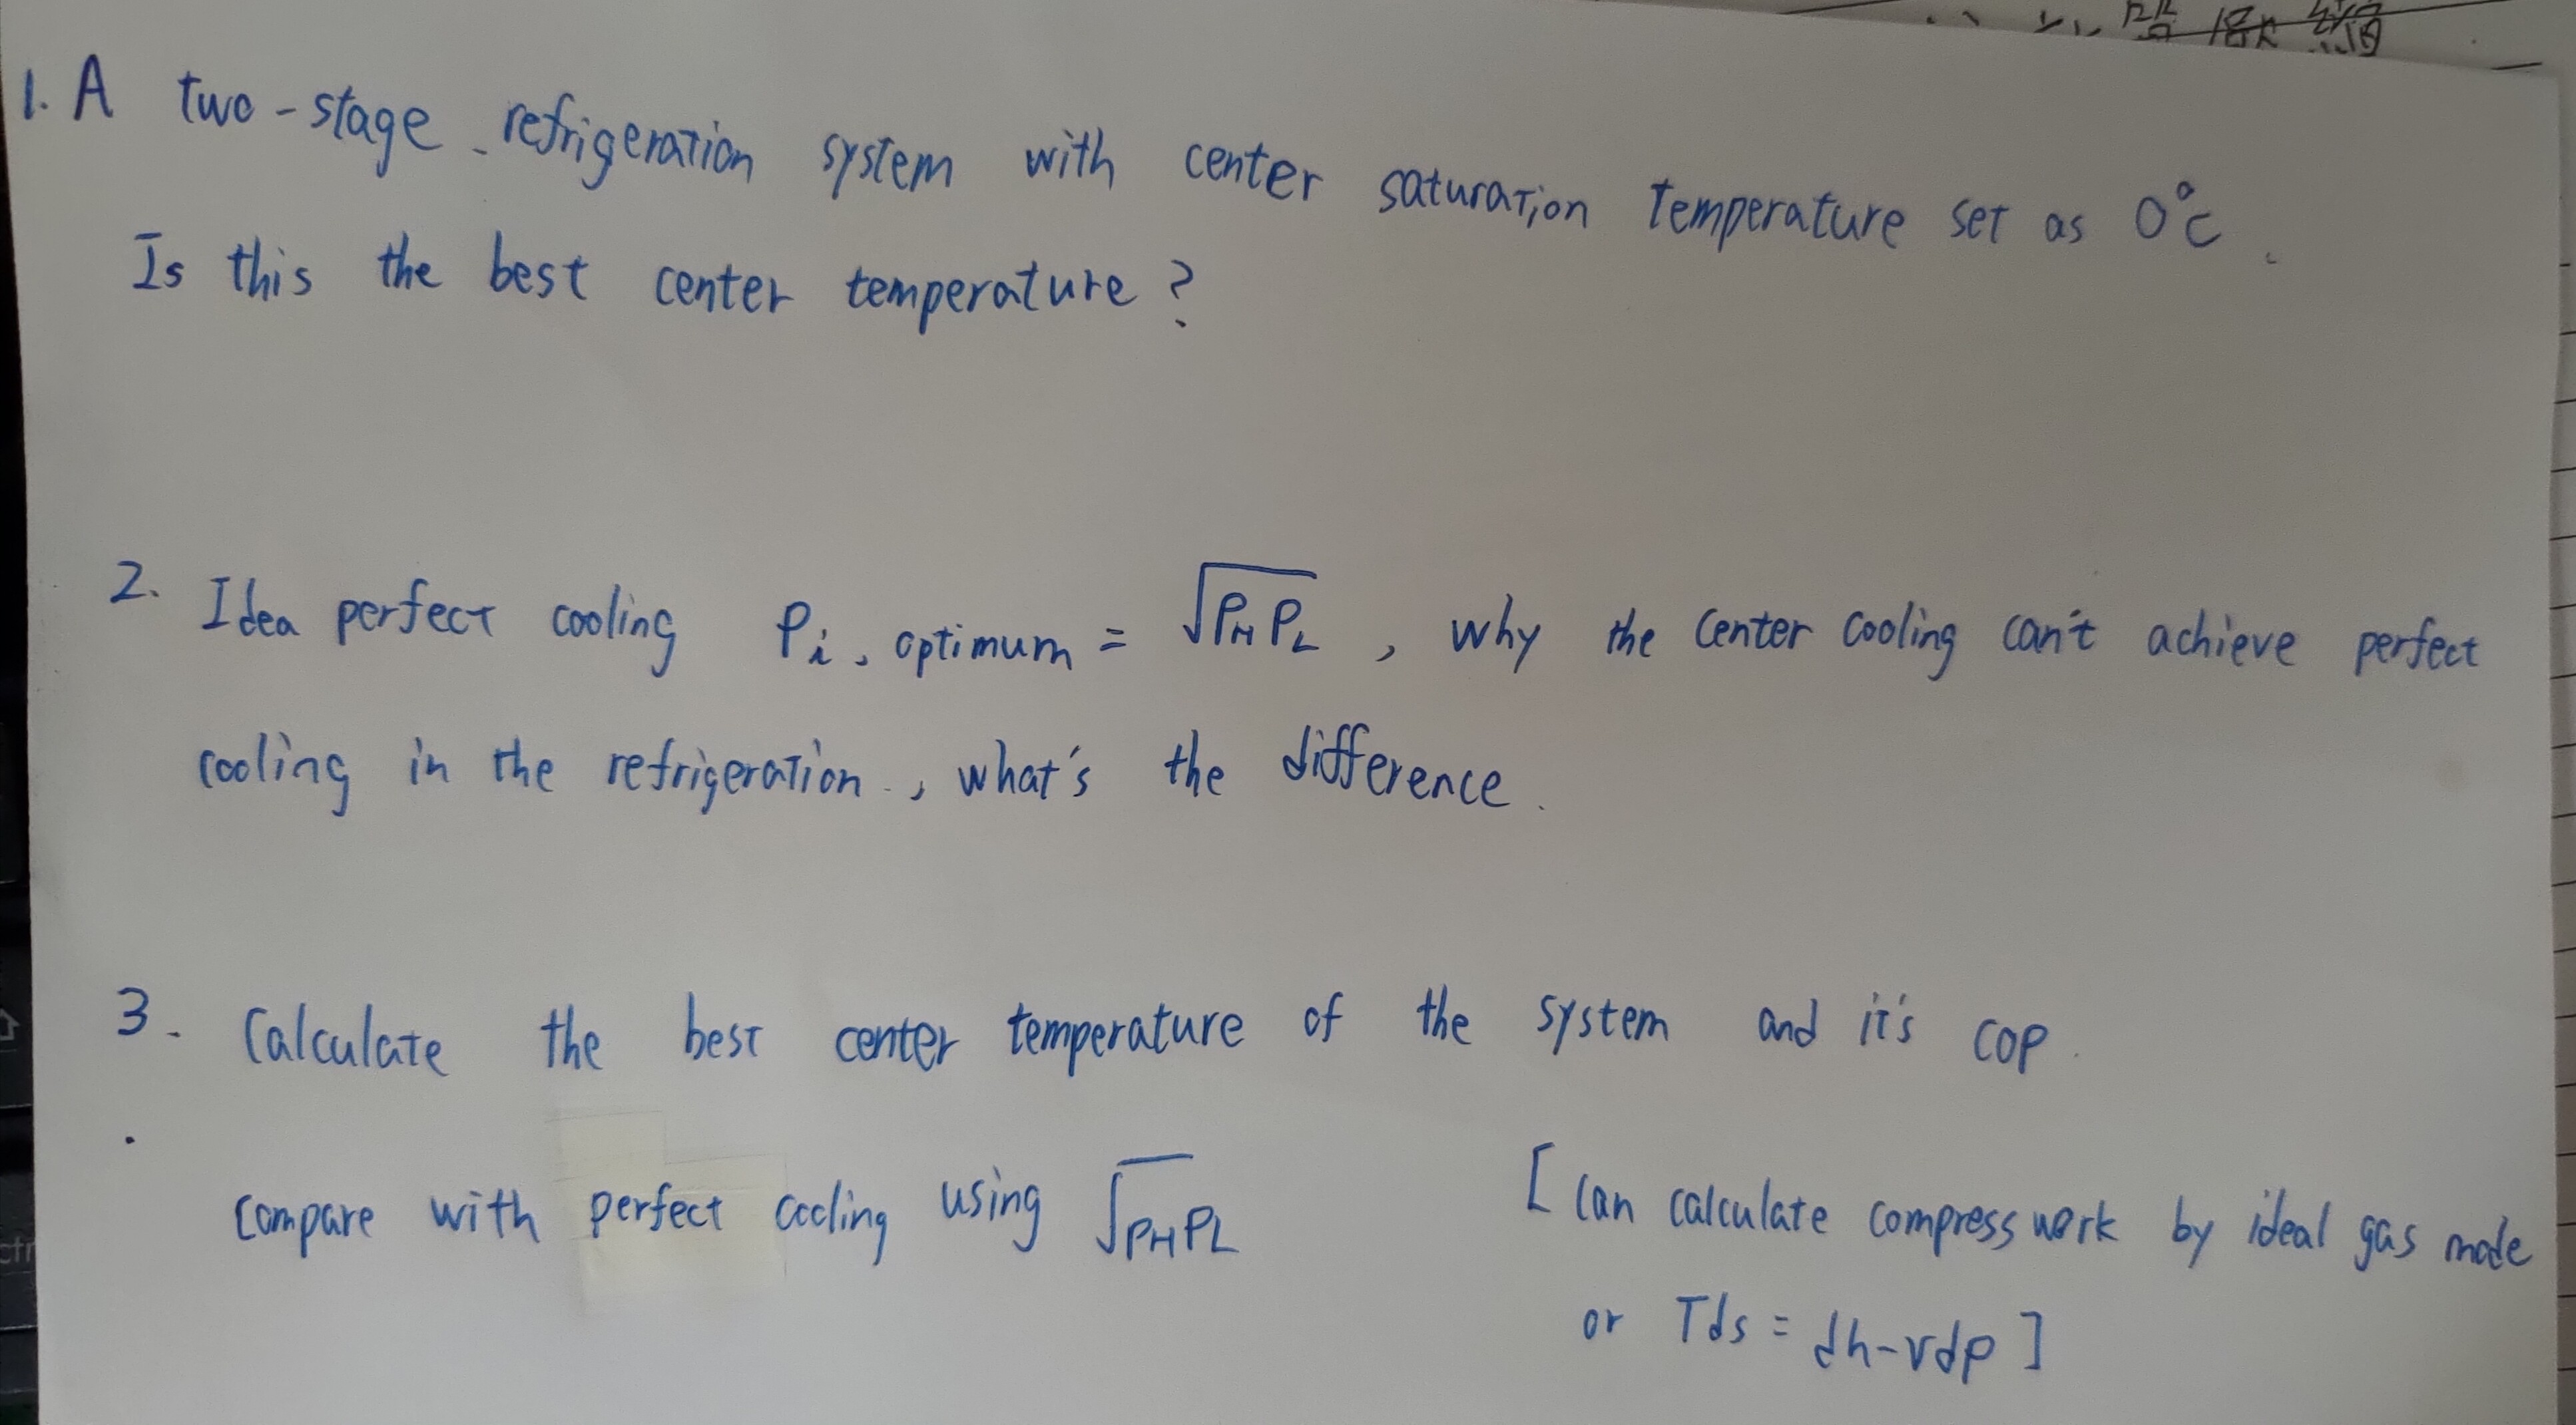 1. A two-stage refrigeration system with center saturation temperature set as 0°C.
Is this the best center temperature?
2. Idea perfect cooling Pi, optimum = √PHPL, why the center cooling can't achieve perfect
cooling in the refrigeration, what's the difference.
3. Calculate the best center temperature of the system and it's COP.
compare with perfect cooling using √PHPL
[can calculate compress work by ideal gas mode
or Tds = dh-vdp]